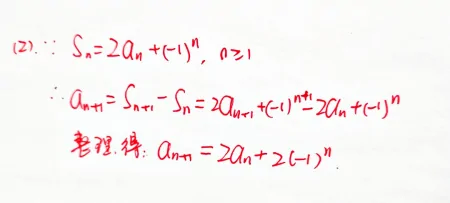 (2). ∵ Sₙ=2aₙ+(-1)ⁿ, n≥1
∴ aₙ₊₁=Sₙ₊₁-Sₙ=2aₙ₊₁+(-1)ⁿ⁺¹-2aₙ+(-1)ⁿ
整理.得: aₙ₊₁=2aₙ+2(-1)ⁿ.